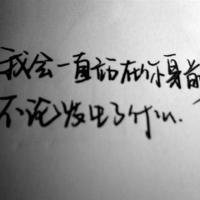 我会一直站在你身前
不论发生了什么.